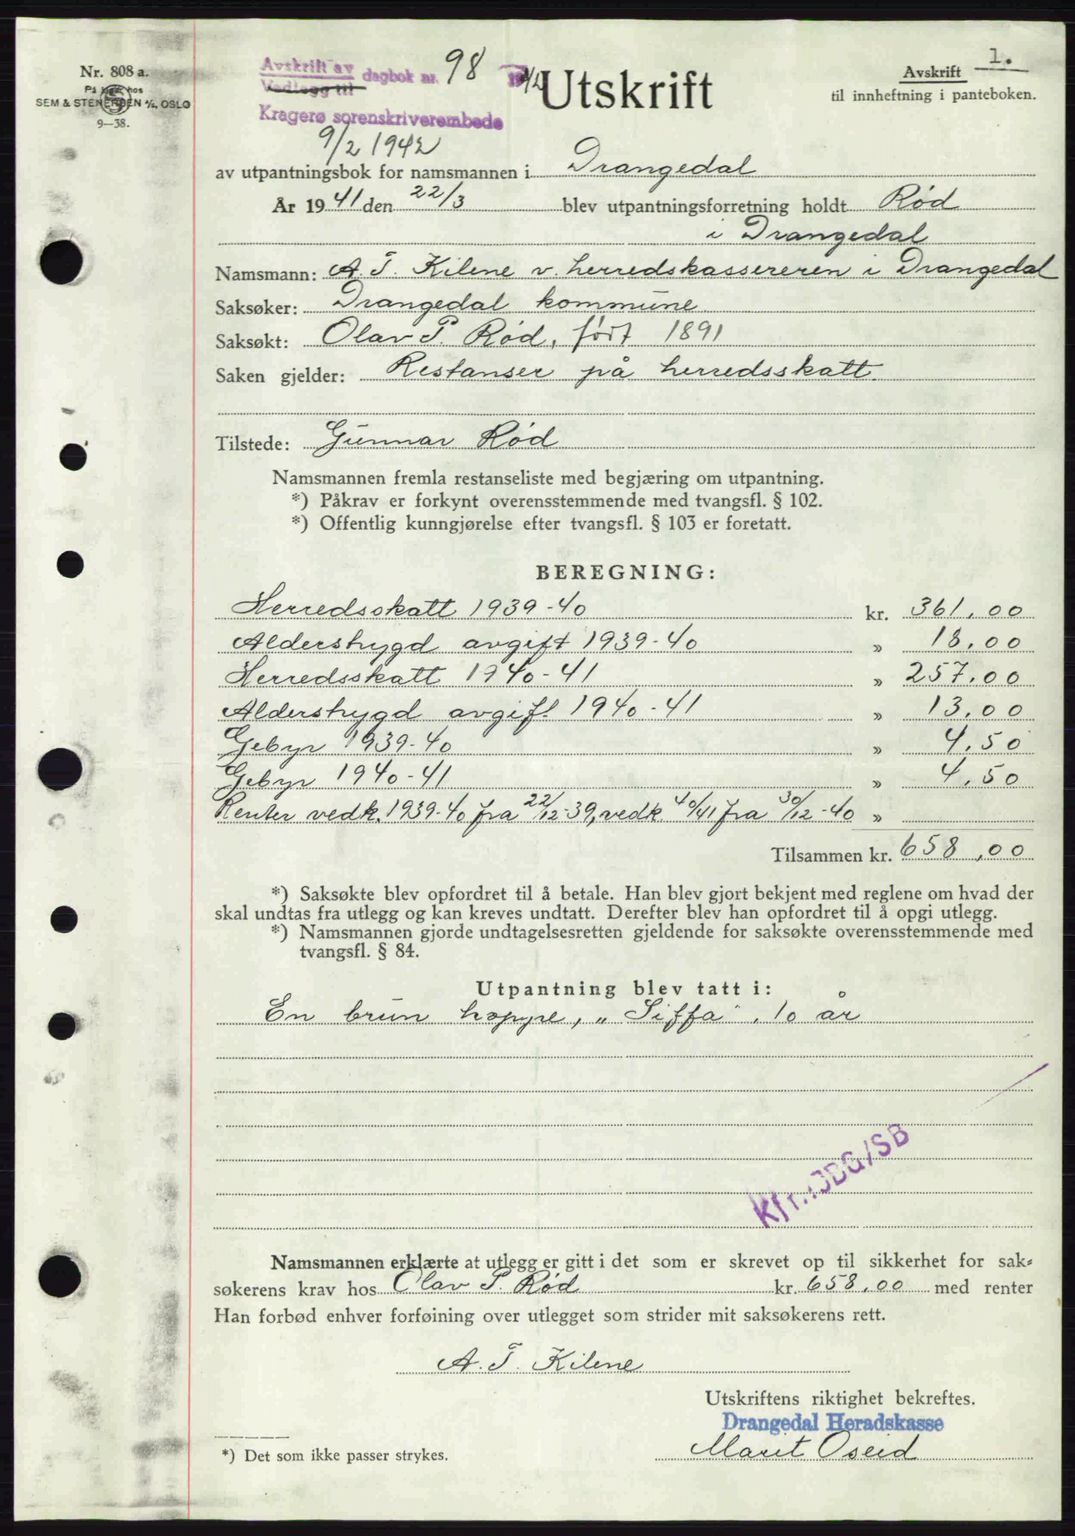 Nr. 808 a.
På lager hos
SEM & STENERSEN A/S, OSLO
9—38.
Avskrift av
Vedlegg til
dagbok nr. 98 1942
Kragerø sorenskriverembede
9/2 1942
Utskrift
1.
Avskrift
til innheftning i panteboken.
av utpantningsbok for namsmannen i Drangedal
År 1941 den 22/3 blev utpantningsforretning holdt Rød
i Drangedal
Namsmann: A. T. Kilene v. herredskassereren i Drangedal
Saksøker: Drangedal kommune
Saksøkt: Olav P. Rød, født 1891
Saken gjelder: Restanser på herredsskatt.
Tilstede: Gunnar Rød
Namsmannen fremla restanseliste med begjæring om utpantning.
*) Påkrav er forkynt overensstemmende med tvangsfl. § 102.
*) Offentlig kunngjørelse efter tvangsfl. § 103 er foretatt.
BEREGNING:
Herredsskatt 1939-40 kr. 361,00
Alderstrygd avgift 1939-40 » 18,00
Herredsskatt 1940-41 » 257,00
Alderstrygd avgift 1940-41 » 13,00
Gebyr 1939-40 » 4,50
Gebyr 1940-41 » 4,50
Renter vedk. 1939-40 fra 22/12-39, vedk. 40/41 fra 30/12-40 »
Tilsammen kr. 658,00
*) Saksøkte blev opfordret til å betale. Han blev gjort bekjent med reglene om hvad der
skal undtas fra utlegg og kan kreves undtatt. Derefter blev han opfordret til å opgi utlegg.
*) Namsmannen gjorde undtagelsesretten gjeldende for saksøkte overensstemmende med
tvangsfl. § 84.
Utpantning blev tatt i:
En brun hoppe, „Siffa", 10 år
Kfr. DBG/SB
Namsmannen erklærte at utlegg er gitt i det som er skrevet op til sikkerhet for sak-
søkerens krav hos Olav P. Rød kr. 658,00 med renter
Han forbød enhver forføining over utlegget som strider mit saksøkerens rett.
A. T. Kilene
Utskriftens riktighet bekreftes.
Drangedal Heradskasse
*) Det som ikke passer strykes.
Marit Oseid